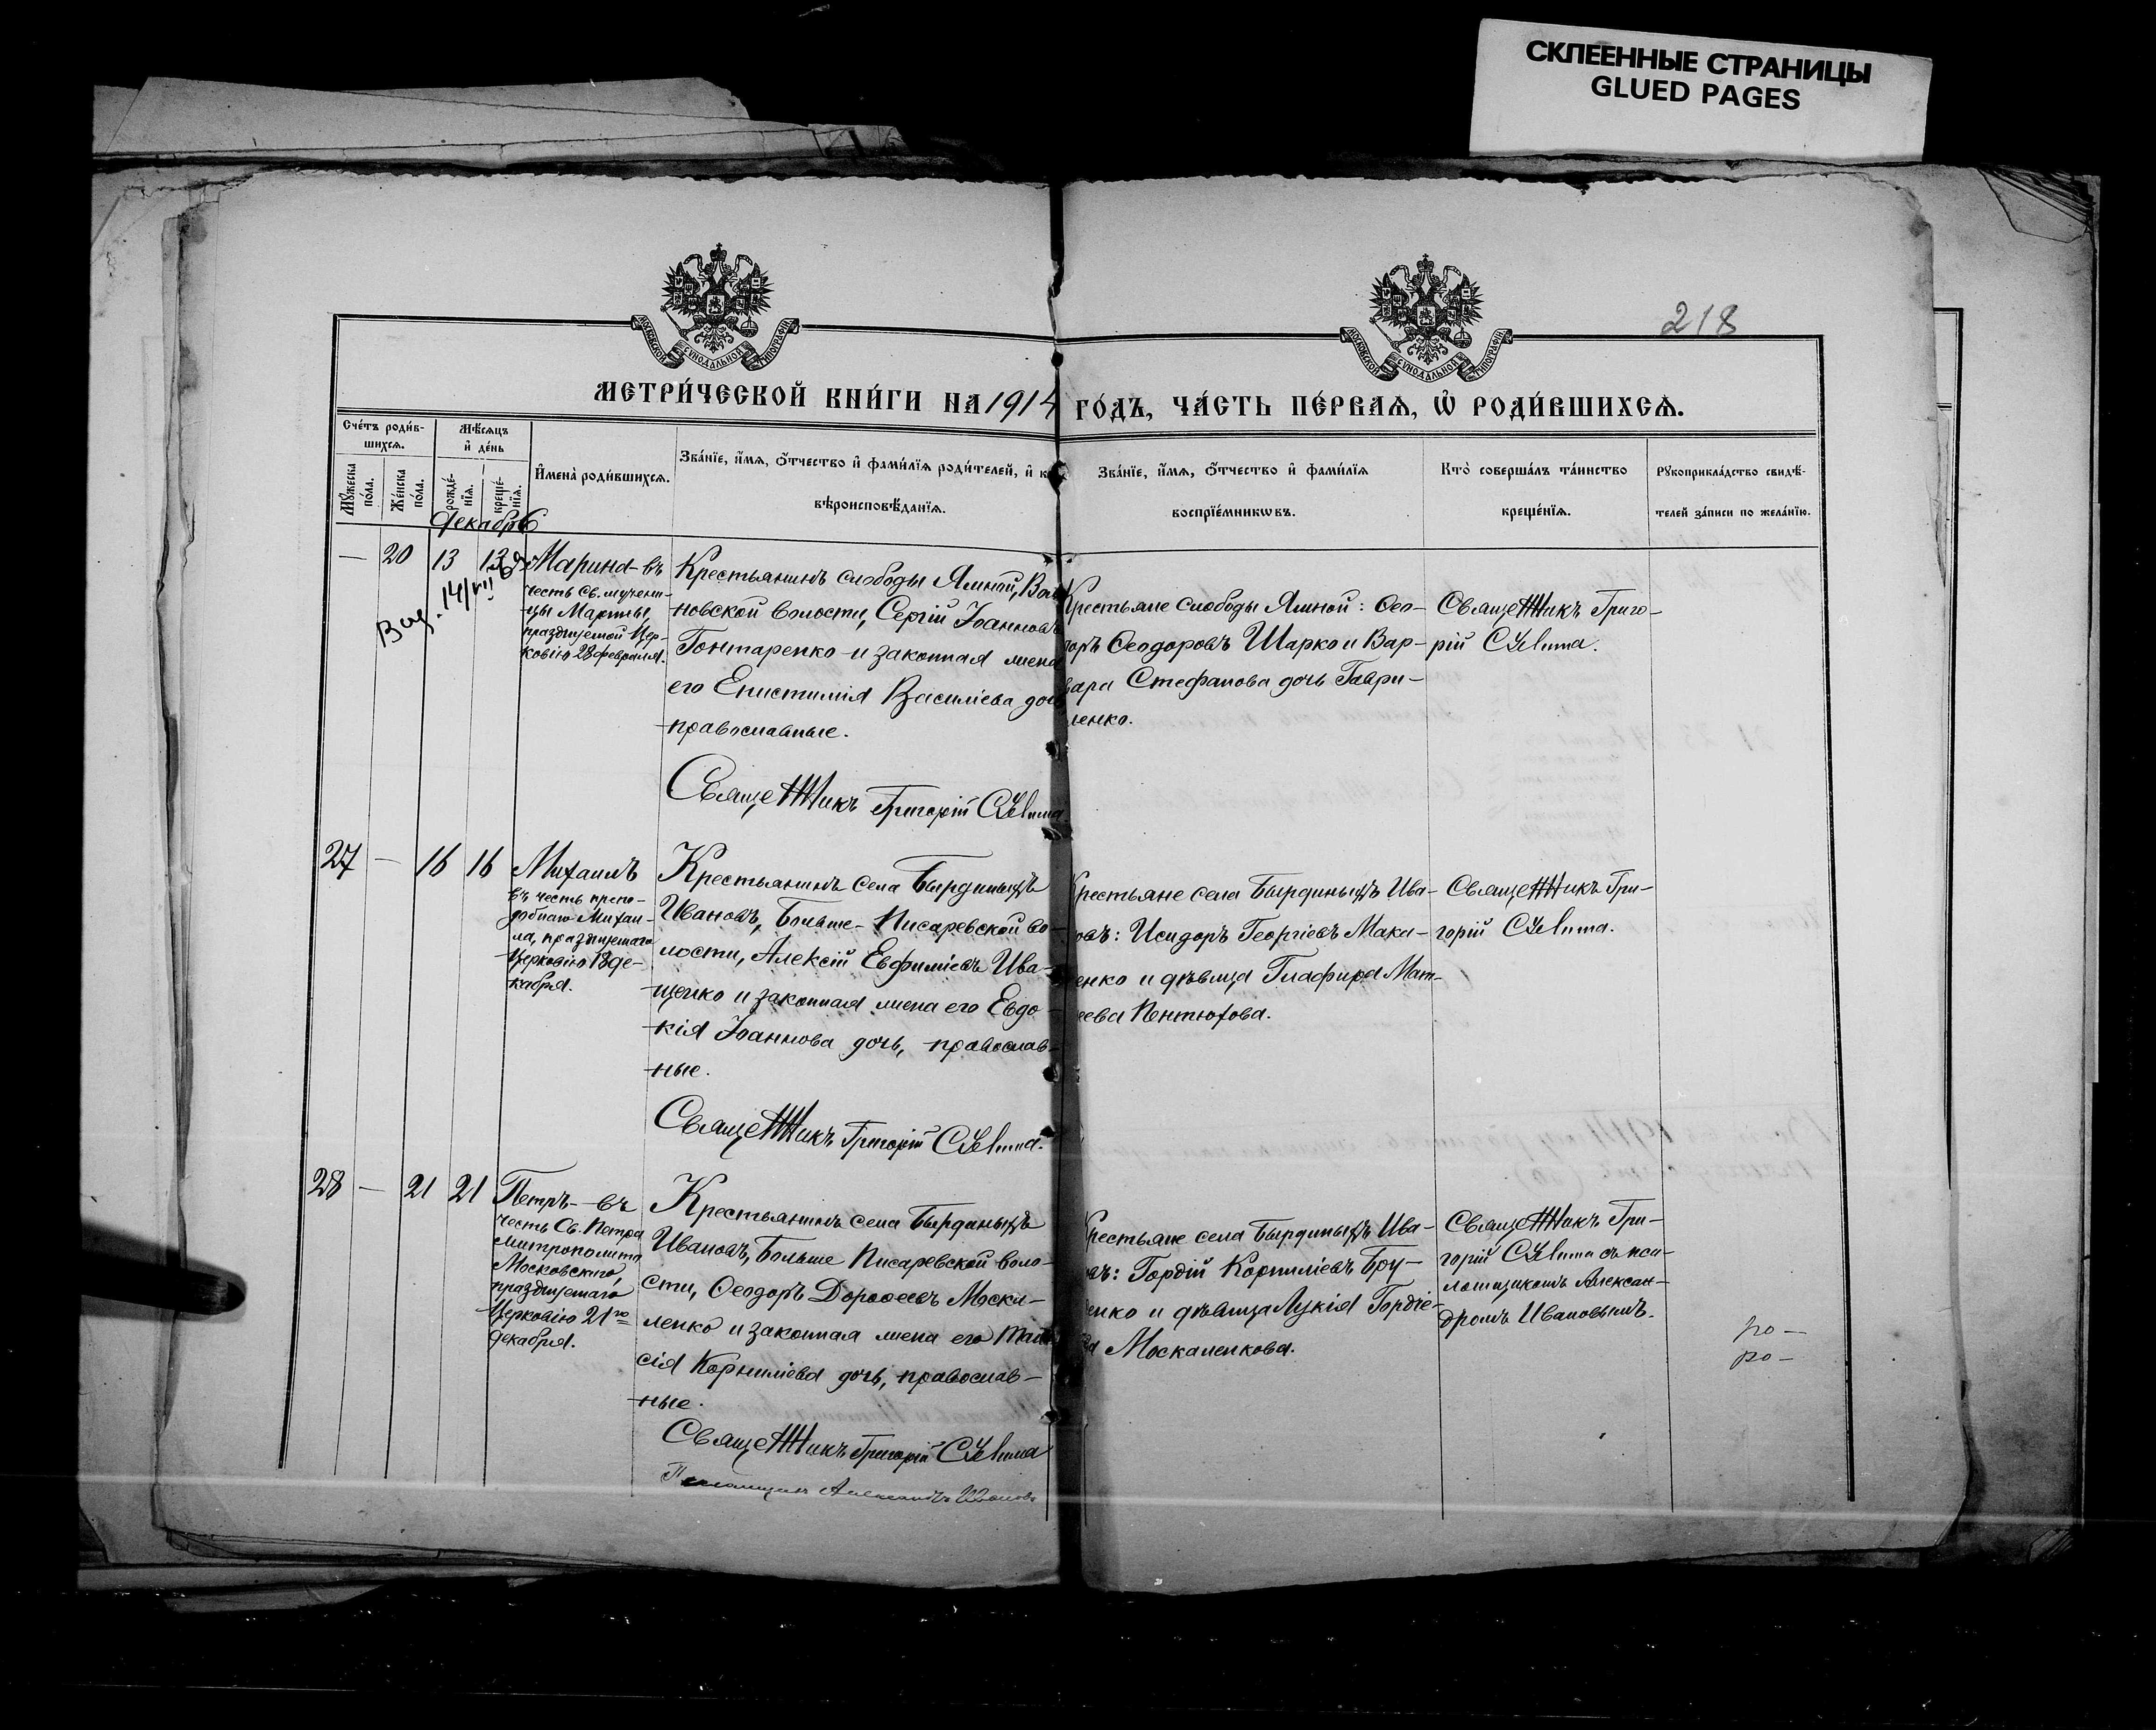 СКЛЕЕННЫЕ СТРАНИЦЫ
GLUED PAGES
218
МОСКОВСКОЙ СѴНОДАЛЬНОЙ ТИПОГРАФІИ
МОСКОВСКОЙ СѴНОДАЛЬНОЙ ТИПОГРАФІИ
МЕТРИ́ЧЕСКОЙ КНИ́ГИ НА 1914 ГО́ДЪ, ЧА́СТЬ ПЕ́РВАѦ, Ѡ҆ РОДИ́ВШИХСѦ.
Сче́тъ роди́в-
шихсѧ.
Мѣ́сѧцъ
и҆ де́нь
Мꙋ́жеска по́ла.
Же́нска по́ла.
рожде́-
нїѧ.
креще́-
нїѧ.
И҆мена̀ роди́вшихсѧ.
Зва́нїе, и҆́мѧ, ѻ҆́тчество и҆ фами́лїѧ роди́телей, и҆
вѣроисповѣ́данїѧ.
Зва́нїе, и҆́мѧ, ѻ҆́тчество и҆ фами́лїѧ
воспрїе́мникѡвъ.
Кто̀ соверша́лъ та́инство
креще́нїѧ.
Рꙋкоприкла́дство свидѣ́-
телей за́писи по жела́нїю.
Декабрь
— 20 13 13
Марина – въ
честь Св. мучени-
цы Марины,
празднуемой Цер-
ковію 28 февраля.
Крестьянинъ слободы Ямной,
новской волости, Сергій Іоанновъ
Гонтаренко и законная жена
его Епистимія Василіева дочь
православные.
Священникъ Григорій
Крестьяне слободы Ямной: Ѳео-
доръ Ѳеодоровъ Шарко и Вар-
вара Стефанова дочь Гаври-
ленко.
Священникъ Григо-
рій
27 — 16 16
Михаилъ
въ честь препо-
добнаго Михаи-
ла, празднуемаго
Церковію 18 де-
кабря.
Крестьянинъ села Бырдиныхъ
Ивановъ, Больше-Писаревской во-
лости, Алексій Евфиміевъ Ива-
щенко и законная жена его Евдо-
кія Іоаннова дочь, православ-
ные.
Священникъ Григорій
Крестьяне села Бырдиныхъ Ива-
новъ: Исидоръ Георгіевъ Мака-
ренко и дѣвица Глафира Мат-
ѳеева Пентюхова.
Священникъ Гри-
горій
28 — 21 21
Петръ – въ
честь Св. Петра
Митрополита
Московскаго,
празднуемаго
Церковію 21го
декабря.
Крестьянинъ села Бырдиныхъ
Ивановъ, Больше Писаревской воло-
сти, Ѳеодоръ Дороѳеевъ Моска-
ленко и законная жена его Таи-
сія Корниліева дочь, православ-
ные.
Священникъ Григорій
Псаломщикъ Александръ Ивановъ
Крестьяне села Бырдиныхъ Ива-
новъ: Гордій Корниліевъ
и дѣвица Лукія Гордіе-
ва Москаленкова.
Священникъ Гри-
горій съ пса-
ломщикомъ Алексан-
дромъ Ивановымъ.